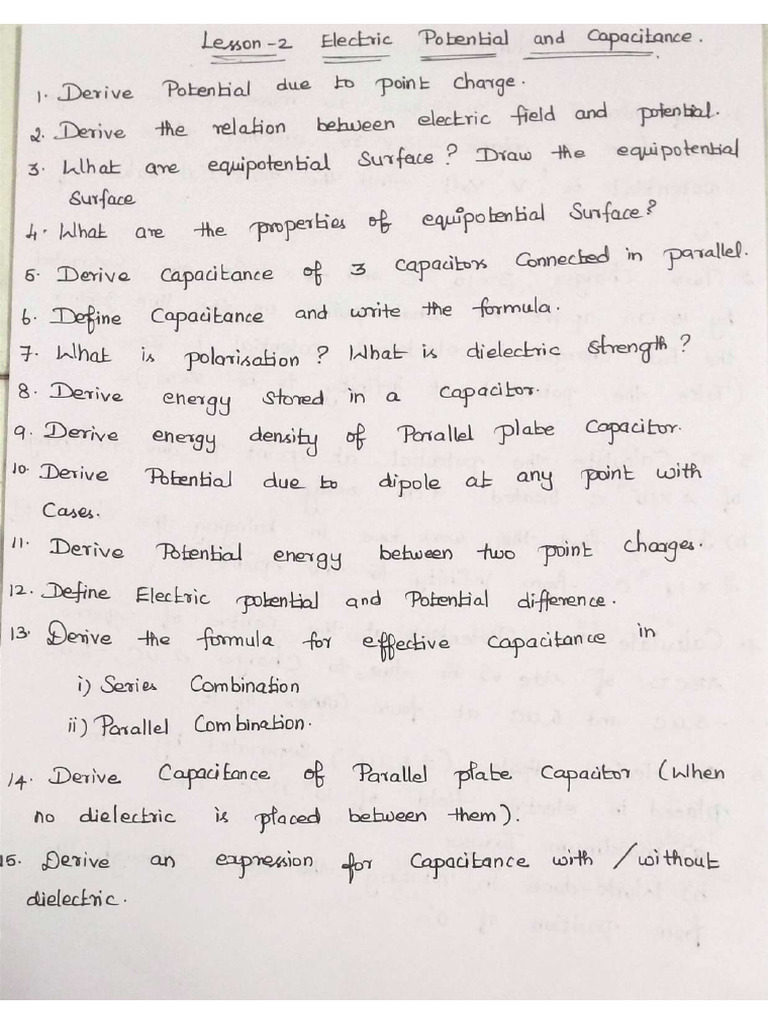 Lesson-2 Electric Potential and Capacitance.
1. Derive Potential due to point charge.
2. Derive the relation between electric field and potential.
3. What are equipotential Surface? Draw the equipotential
Surface
4. What are the properties of equipotential Surface?
5. Derive Capacitance of 3 capacitors Connected in parallel.
6. Define Capacitance and write the formula.
7. What is polarisation? What is dielectric strength?
8. Derive energy stored in a capacitor.
9. Derive energy density of Parallel plate Capacitor.
10. Derive Potential due to dipole at any point with
Cases.
11. Derive Potential energy between two point charges.
12. Define Electric potential and Potential difference.
13. Derive the formula for effective capacitance in
i) Series Combination
ii) Parallel Combination.
14. Derive Capacitance of Parallel plate Capacitor (When
no dielectric is placed between them).
15. Derive an expression for Capacitance with / without
dielectric.